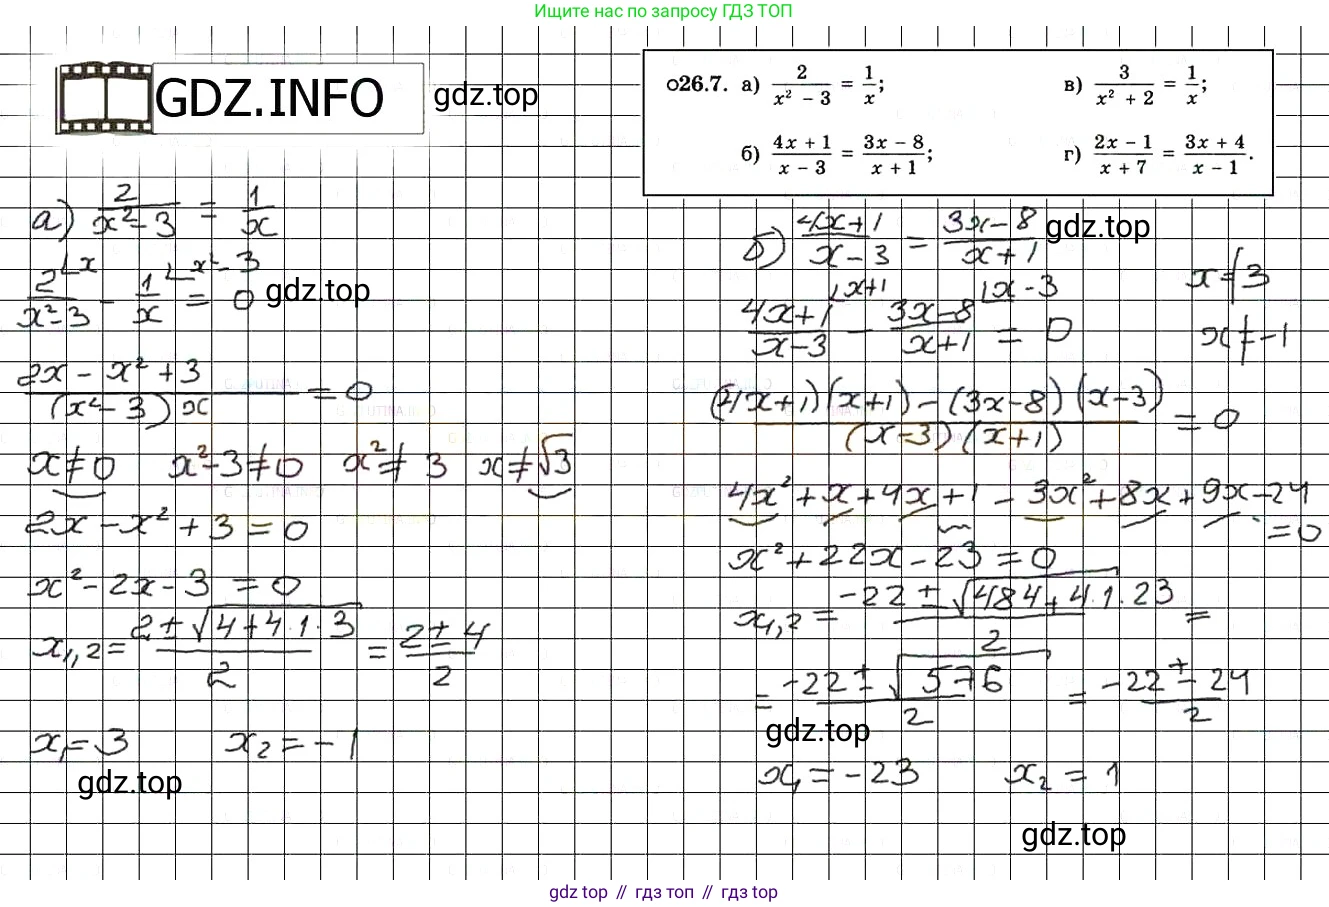 Ищите нас по запросу ГДЗ ТОП
GDZ.INFO
gdz.top
○26.7. а) 2/(x² − 3) = 1/x; в) 3/(x² + 2) = 1/x;
б) (4x + 1)/(x − 3) = (3x − 8)/(x + 1); г) (2x − 1)/(x + 7) = (3x + 4)/(x − 1).
а) 2/(x² − 3) = 1/x
2/(x² − 3) ⌊x − 1/x ⌊x² − 3 = 0
gdz.top
(2x − x² + 3)/((x² − 3)x) = 0
x ≠ 0 x² − 3 ≠ 0 x² ≠ 3 x ≠ √3
2x − x² + 3 = 0
x² − 2x − 3 = 0
x₁,₂ = (2 ± √(4 + 4·1·3))/2 = (2 ± 4)/2
x₁ = 3 x₂ = −1
gdz.top
б) (4x + 1)/(x − 3) = (3x − 8)/(x + 1)
gdz.top
x ≠ 3
(4x + 1)/(x − 3) ⌊x + 1 − (3x − 8)/(x + 1) ⌊x − 3 = 0
x ≠ −1
((4x + 1)(x + 1) − (3x − 8)(x − 3))/((x − 3)(x + 1)) = 0
4x² + x + 4x + 1 − 3x² + 8x + 9x − 24 = 0
x² + 22x − 23 = 0
x₁,₂ = (−22 ± √(484 + 4·1·23))/2 =
= (−22 ± √576)/2 = (−22 ± 24)/2
gdz.top
x₁ = −23 x₂ = 1
gdz.top
gdz top // гдз топ // gdz top